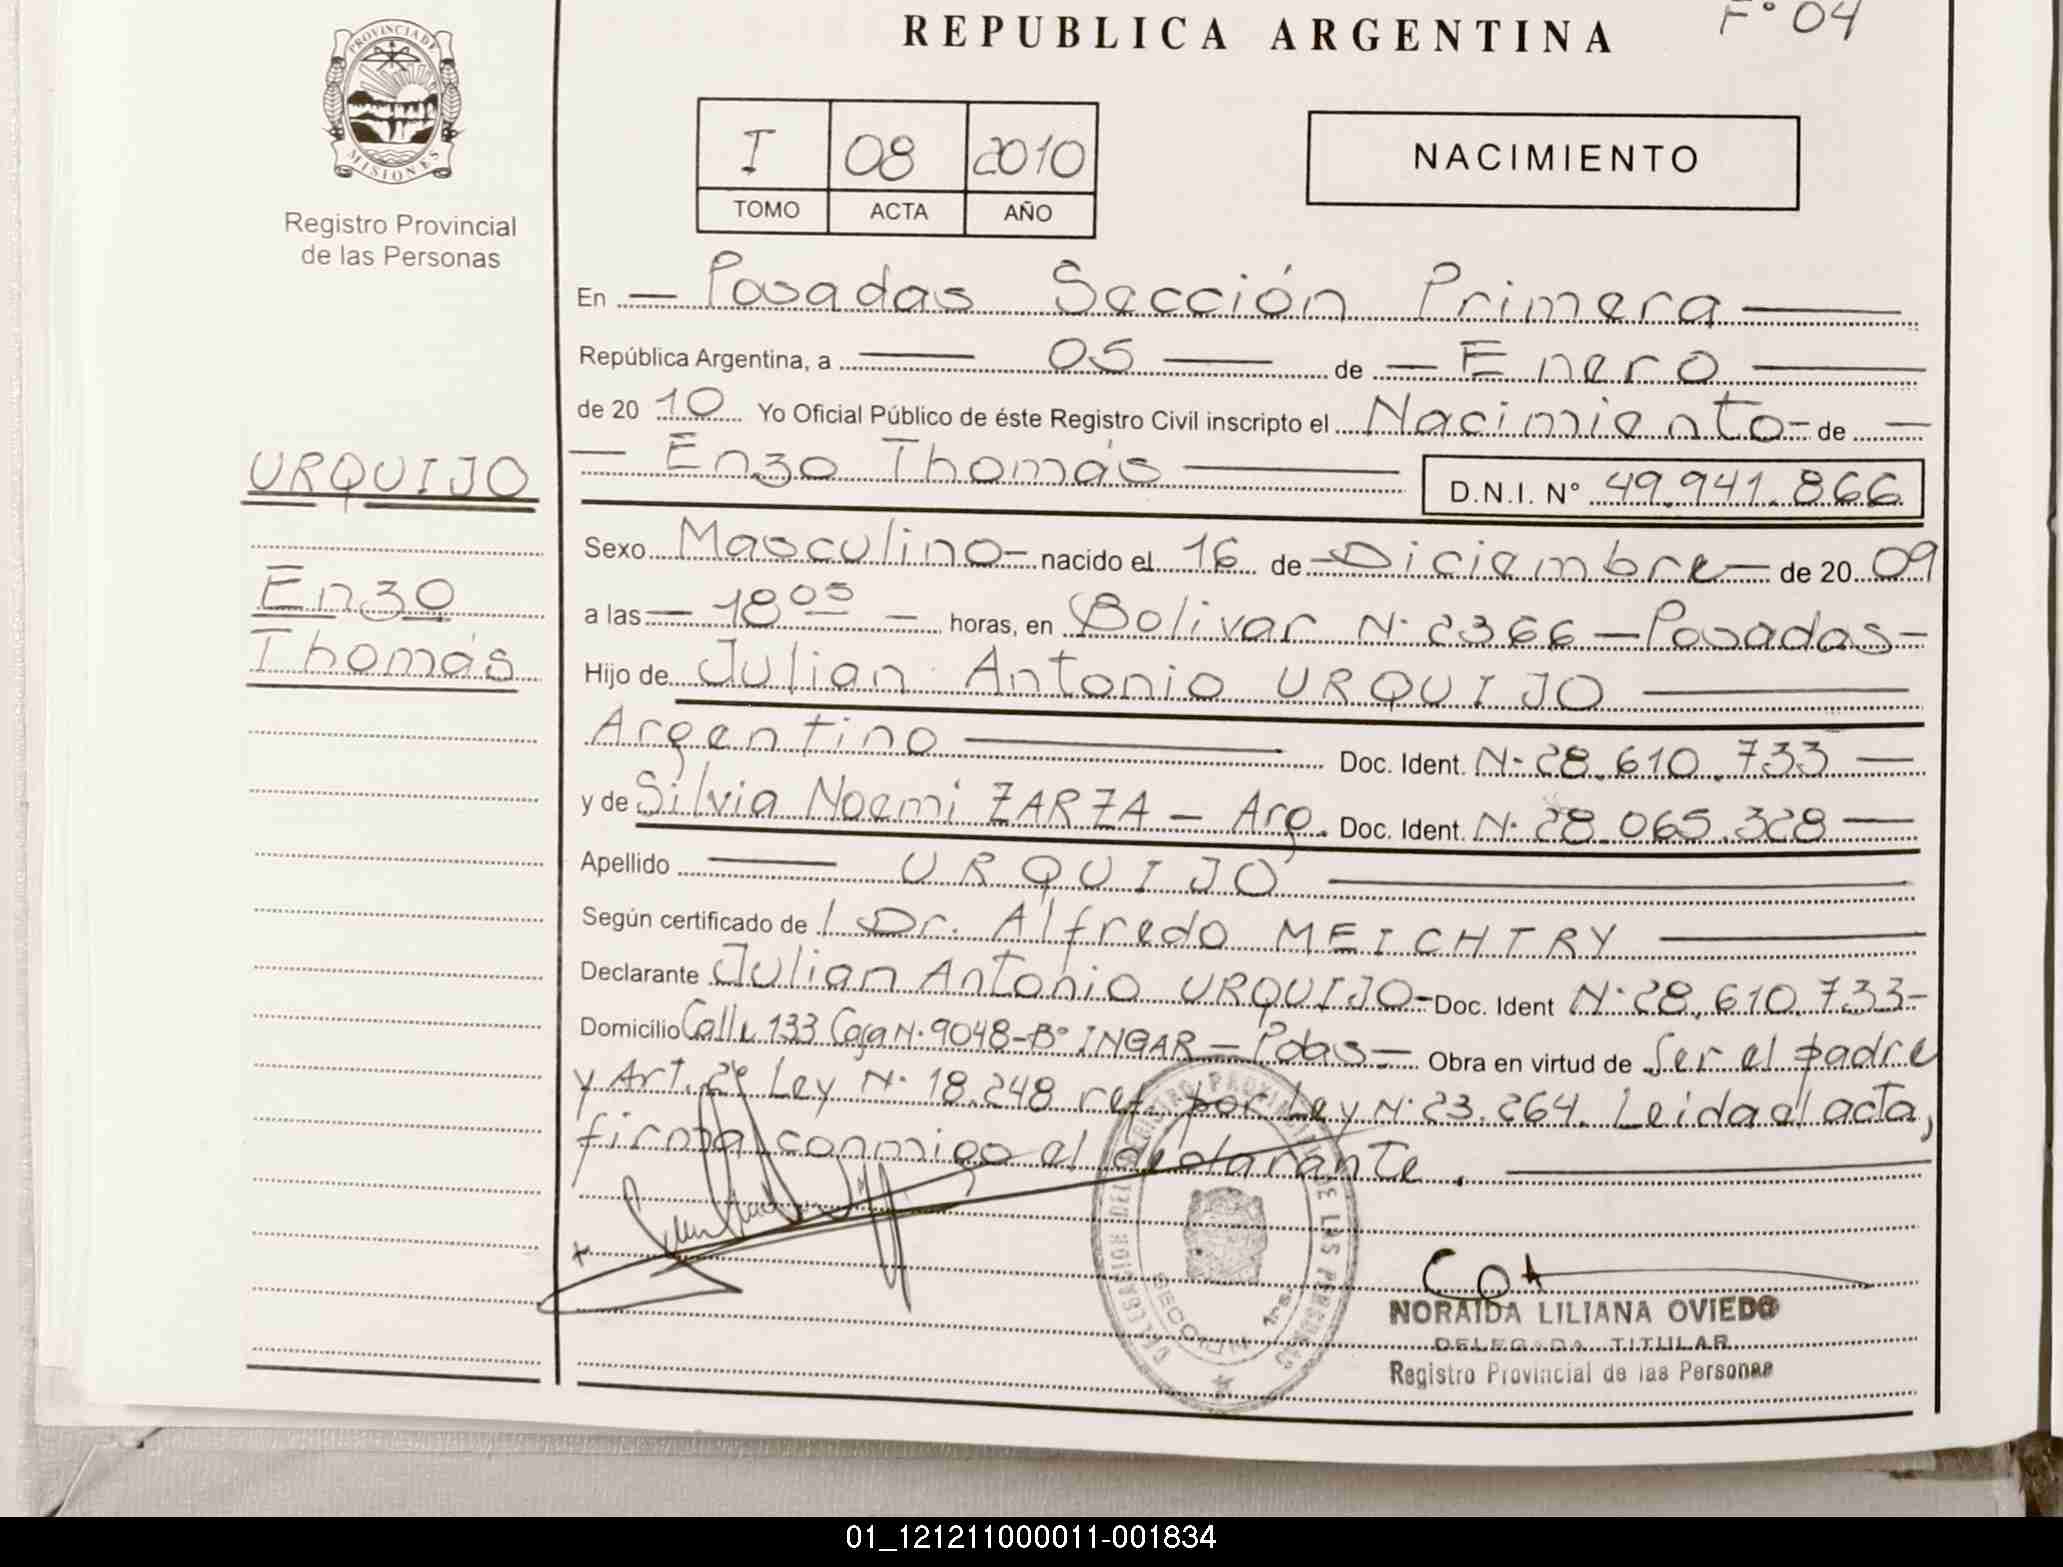 REPUBLICA ARGENTINA
F° 04
PROVINCIA DE
MISIONES
Registro Provincial
de las Personas
I 08 2010
TOMO ACTA AÑO
NACIMIENTO
En — Posadas Sección Primera —
República Argentina, a — 05 — de — Enero —
de 20 10 Yo Oficial Público de éste Registro Civil inscripto el Nacimiento - de —
— Enzo Thomás — D.N.I. N° 49.941.866
URQUIJO
Enzo
Thomás
Sexo Masculino - nacido el 16 de - Diciembre - de 20 09
a las — 18 05 — horas, en Bolivar N· 2366 — Posadas -
Hijo de Julian Antonio URQUIJO —
Argentino — Doc. Ident. N· 28.610.733 —
y de Silvia Noemi ZARZA — Arg. Doc. Ident. N· 28.065.328 —
Apellido — URQUIJO —
Según certificado de Dr. Alfredo MEICHTRY —
Declarante Julian Antonio URQUIJO - Doc. Ident N· 28.610.733 -
Domicilio Calle 133 Casa N· 9048 - B° INGAR — Pdas — Obra en virtud de Ser el padre
y Art. 2° Ley N· 18.248 ref. por Ley N· 23.264. Leida el acta,
firma conmigo el declarante. —
DELEGACION DEL REGISTRO PROVINCIAL DE LAS PERSONAS
SECCION 1ra.
NORAIDA LILIANA OVIEDO
DELEGADA TITULAR
Registro Provincial de las Personas
01_121211000011-001834